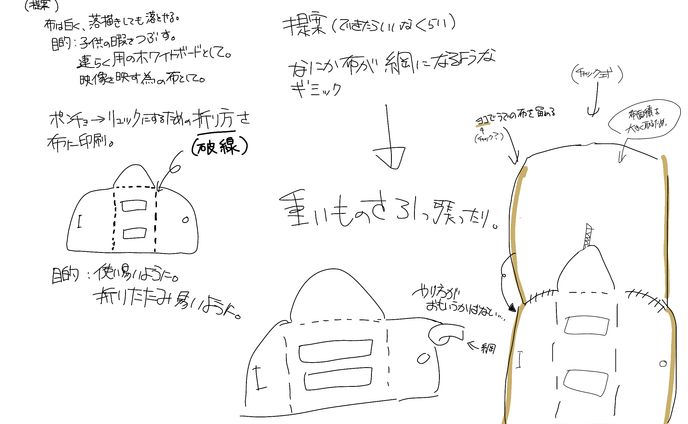 (提案)
布は白く、落書きしても落とせる。
目的:子供の暇をつぶす。
連らく用のホワイトボードとして。
映像を映す為の布として。
ポンチョ→リュックにするための折り方を
布に印刷。
(破線)
目的:使い易いように。
折りたたみ易いように。
提案(できたらいいなくらい)
なにか布が網になるような
ギミック
重いものを引っ張ったり。
やり方が
おもいうかばない...
←網
(チャック式)
ココでうでの布を留める
(チャック?)
布面積を
大きく取るため。